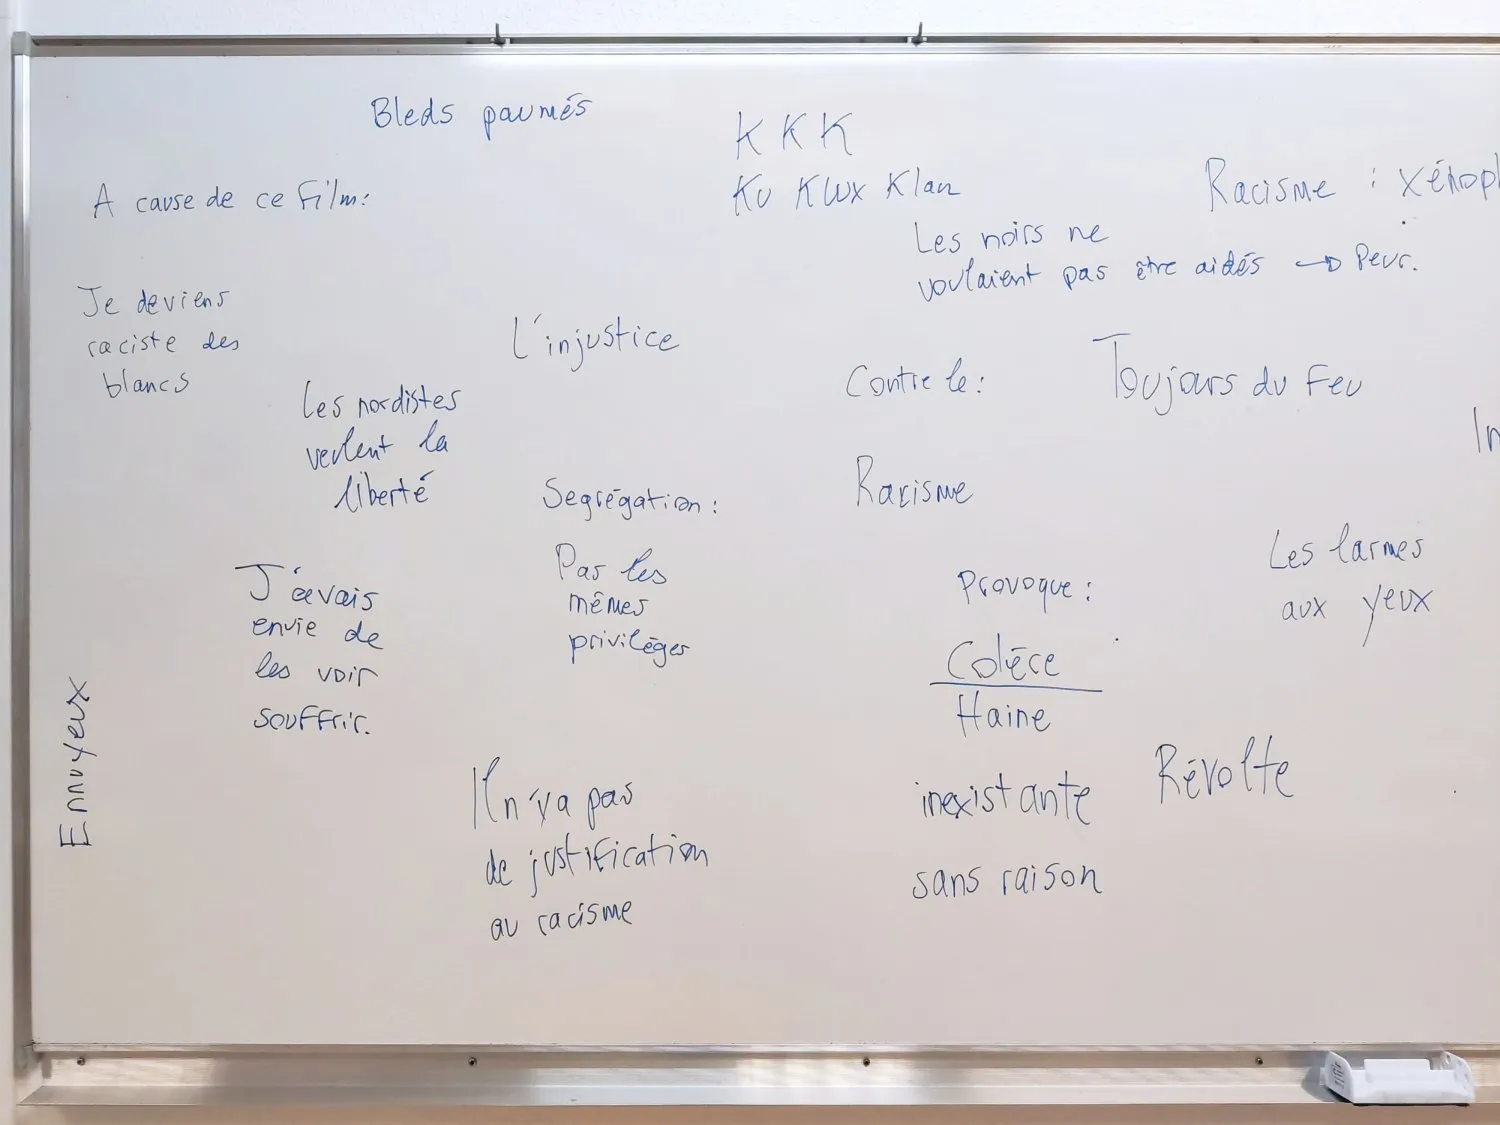 Bleds paumés
K K K
Ku Klux Klan
A cause de ce film:
Racisme : xénoph
Les noirs ne
voulaient pas être aidés → Peur.
Je deviens
raciste des
blancs
L'injustice
Les nordistes
veulent la
liberté
Contre le:
Toujours du Feu
In
Racisme
Segrégation:
Pas les
mêmes
privilèges
J'avais
envie de
les voir
souffrir.
Les larmes
aux yeux
Provoque:
Colèce
Haine
inexistante
sans raison
Révolte
Il n'ya pas
de justification
au racisme
Ennuyeux